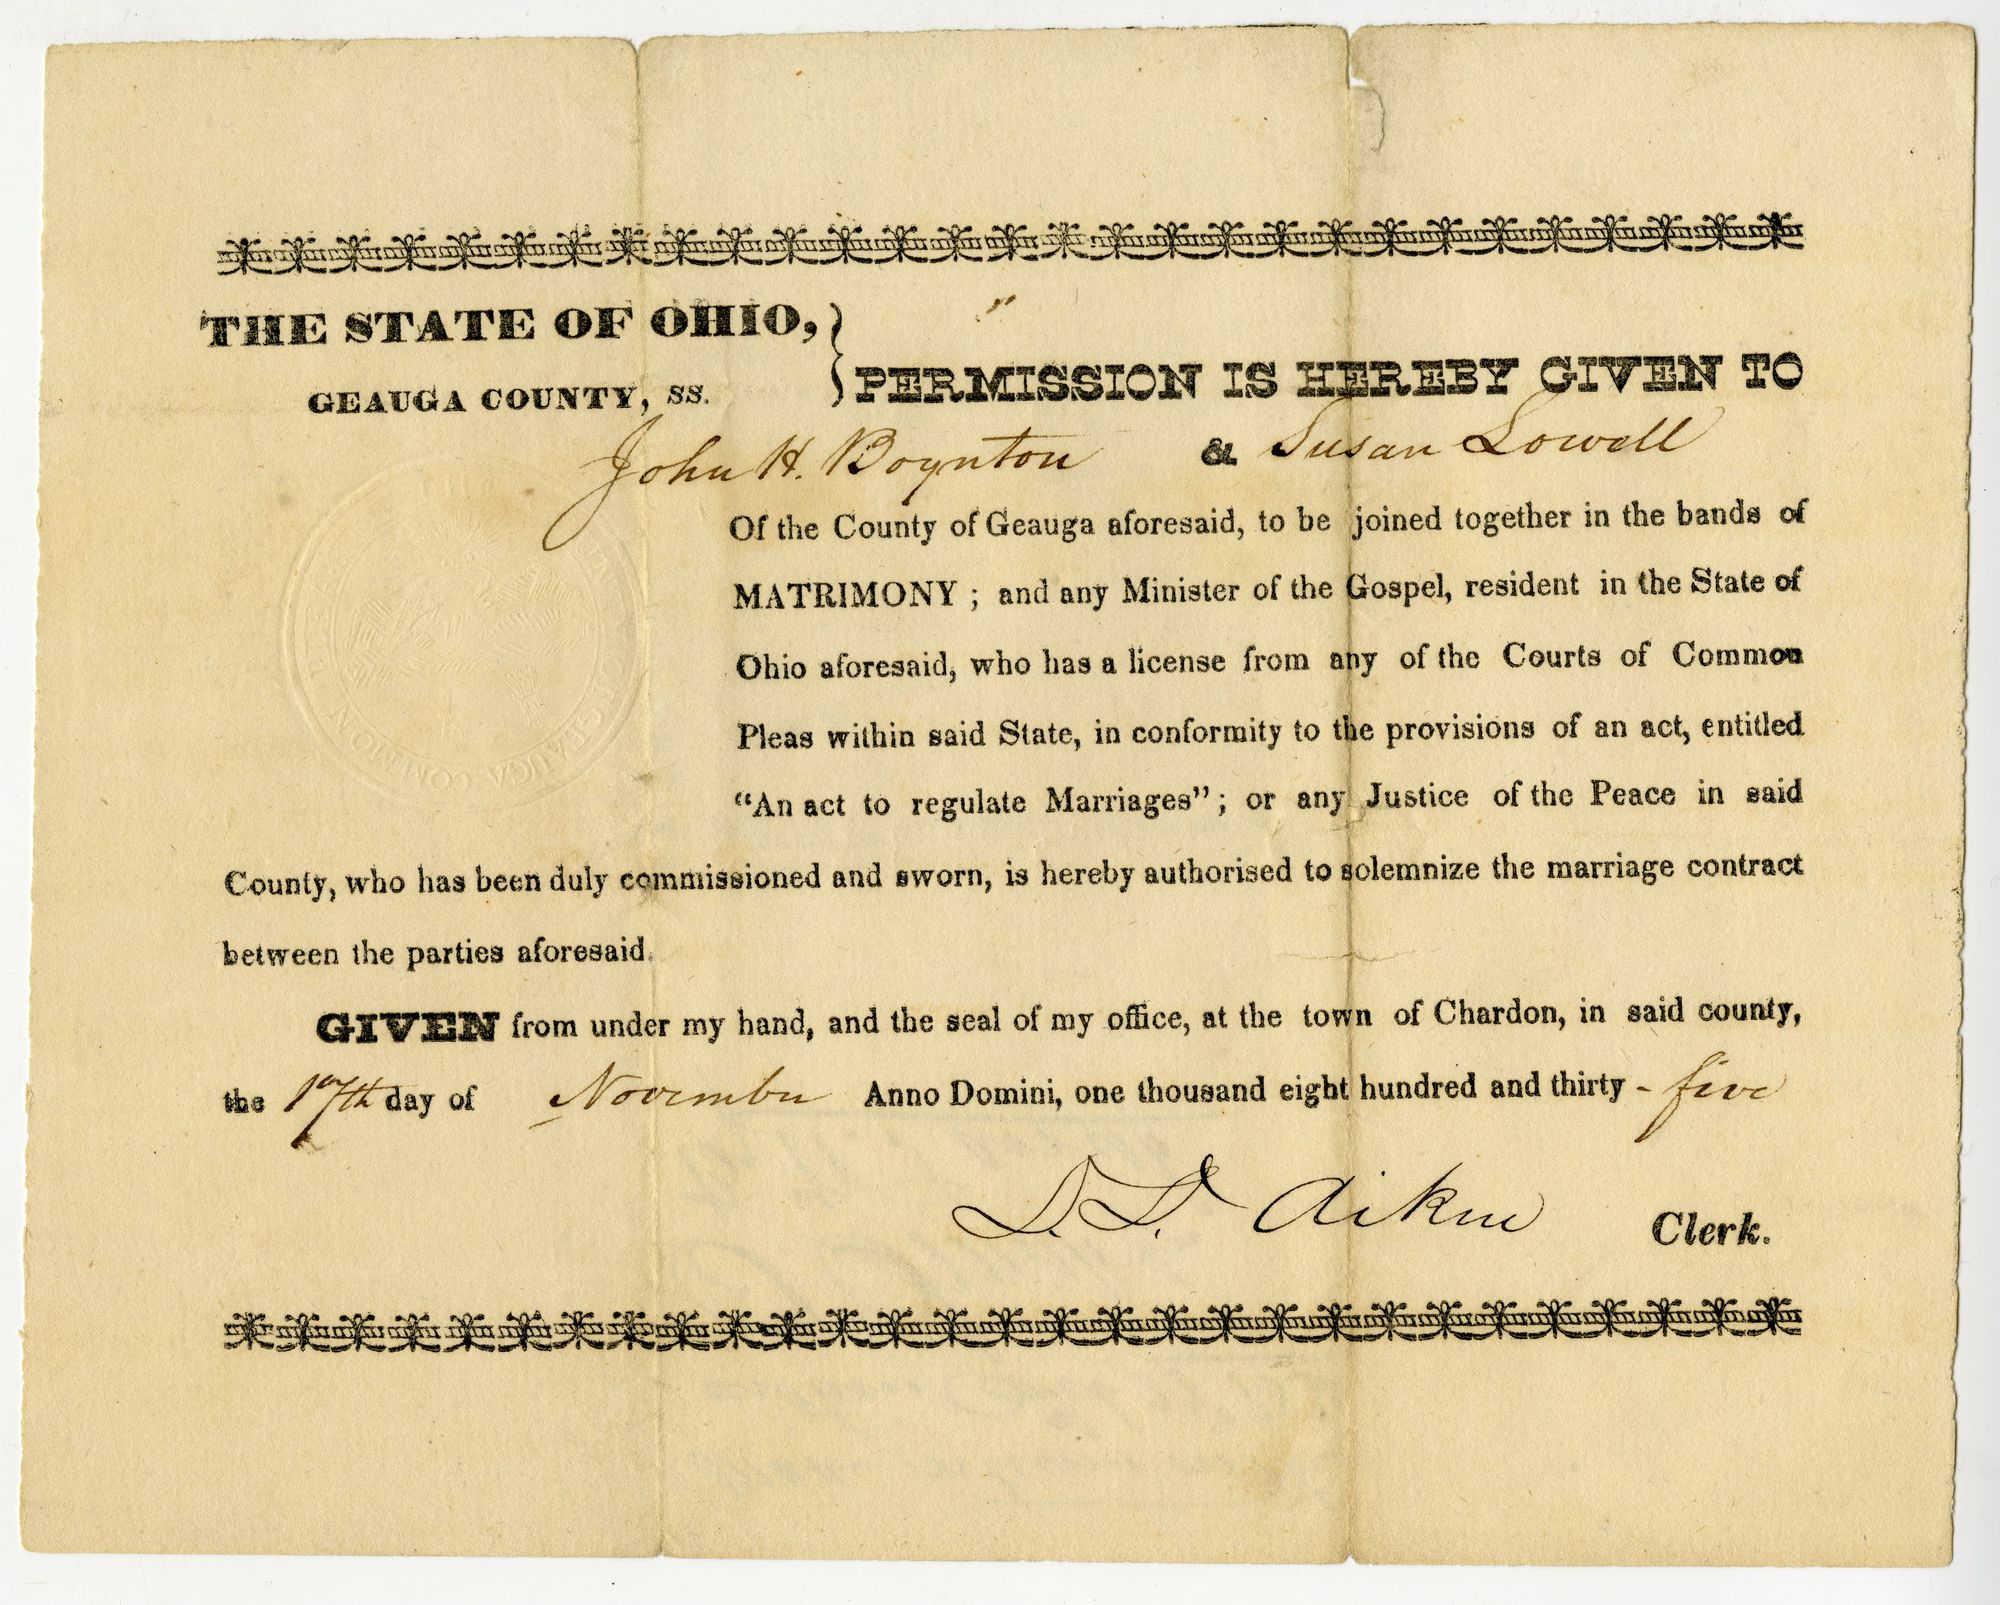 THE STATE OF OHIO,
GEAUGA COUNTY, SS.
PERMISSION IS HEREBY GIVEN TO
John H. Boynton & Susan Lowell
Of the County of Geauga aforesaid, to be joined together in the bands of
MATRIMONY ; and any Minister of the Gospel, resident in the State of
Ohio aforesaid, who has a license from any of the Courts of Common
Pleas within said State, in conformity to the provisions of an act, entitled
"An act to regulate Marriages" ; or any Justice of the Peace in said
County, who has been duly commissioned and sworn, is hereby authorised to solemnize the marriage contract
between the parties aforesaid.
GIVEN from under my hand, and the seal of my office, at the town of Chardon, in said county,
the 17th day of November Anno Domini, one thousand eight hundred and thirty - five
D. D. Aiken Clerk.
GEAUGA COMMON